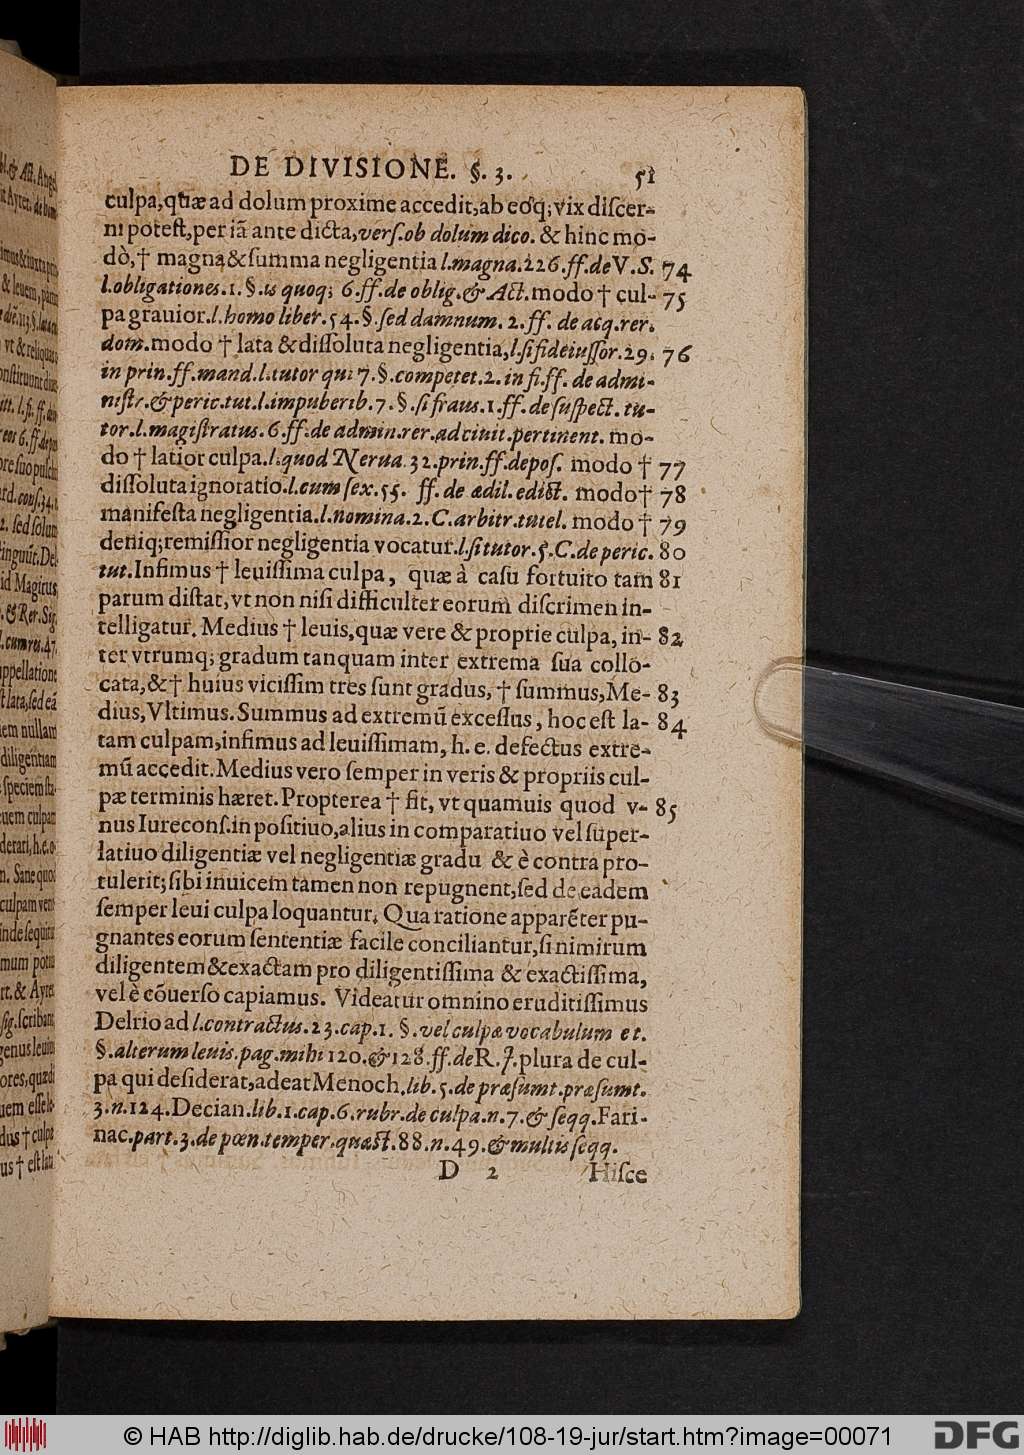 DE DIVISIONE. §. 3. 51
culpa, quæ ad dolum proxime accedit, ab eoq; vix diſcer-
ni poteſt, per iã ante dicta, verſ. ob dolum dico. & hinc mo-
dò, † magna & ſumma negligentia l. magna. 226. ff. de V. S. 74
l. obligationes. 1. §. is quoq; 6. ff. de oblig. & Act. modo † cul- 75
pa grauior. l. homo liber. 54. §. ſed damnum. 2. ff. de acq. rer.
dom. modo † lata & diſſoluta negligentia, l. ſi fideiuſſor. 29. 76
in prin. ff. mand. l. tutor qui 7. §. competet. 2. in fi. ff. de admi-
niſtr. & peric. tut. l. impuberib. 7. §. ſi fraus. 1. ff. de ſuſpect. tu-
tor. l. magiſtratus. 6. ff. de admin. rer. ad ciuit. pertinent. mo-
do † latior culpa. l. quod Nerua. 32. prin. ff. depoſ. modo † 77
diſſoluta ignoratio. l. cum ſex. 55. ff. de ædil. edict. modo † 78
manifeſta negligentia. l. nomina. 2. C. arbitr. tutel. modo † 79
deniq; remiſſior negligentia vocatur. l. ſi tutor. 5. C. de peric. 80
tut. Infimus † leuiſſima culpa, quæ à caſu fortuito tam 81
parum diſtat, vt non niſi difficulter eorum diſcrimen in-
telligatur. Medius † leuis, quæ vere & proprie culpa, in- 82
ter vtrumq; gradum tanquam inter extrema ſua collo-
cata, & † huius viciſſim tres ſunt gradus, † ſummus, Me- 83
dius, Vltimus. Summus ad extremũ exceſſus, hoc eſt la- 84
tam culpam, infimus ad leuiſſimam, h. e. defectus extre-
mũ accedit. Medius vero ſemper in veris & propriis cul-
pæ terminis hæret. Propterea † fit, vt quamuis quod v- 85
nus Iureconſ. in poſitiuo, alius in comparatiuo vel ſuper-
latiuo diligentiæ vel negligentiæ gradu & è contra pro-
tulerit; ſibi inuicem tamen non repugnent, ſed de eadem
ſemper leui culpa loquantur. Qua ratione apparẽter pu-
gnantes eorum ſententiæ facile conciliantur, ſi nimirum
diligentem & exactam pro diligentiſſima & exactiſſima,
vel è cõuerſo capiamus. Videatur omnino eruditiſſimus
Delrio ad l. contractus. 23. cap. 1. §. vel culpæ vocabulum et.
§. alterum leuis. pag. mihi 120. & 128. ff. de R. J. plura de cul-
pa qui deſiderat, adeat Menoch. lib. 5. de præſumt. præſumt.
3. n. 124. Decian. lib. 1. cap. 6. rubr. de culpa. n. 7. & ſeqq. Fari-
nac. part. 3. de pœn. temper. quæſt. 88. n. 49. & multis ſeqq.
D 2 Hiſce
© HAB http://diglib.hab.de/drucke/108-19-jur/start.htm?image=00071
DFG